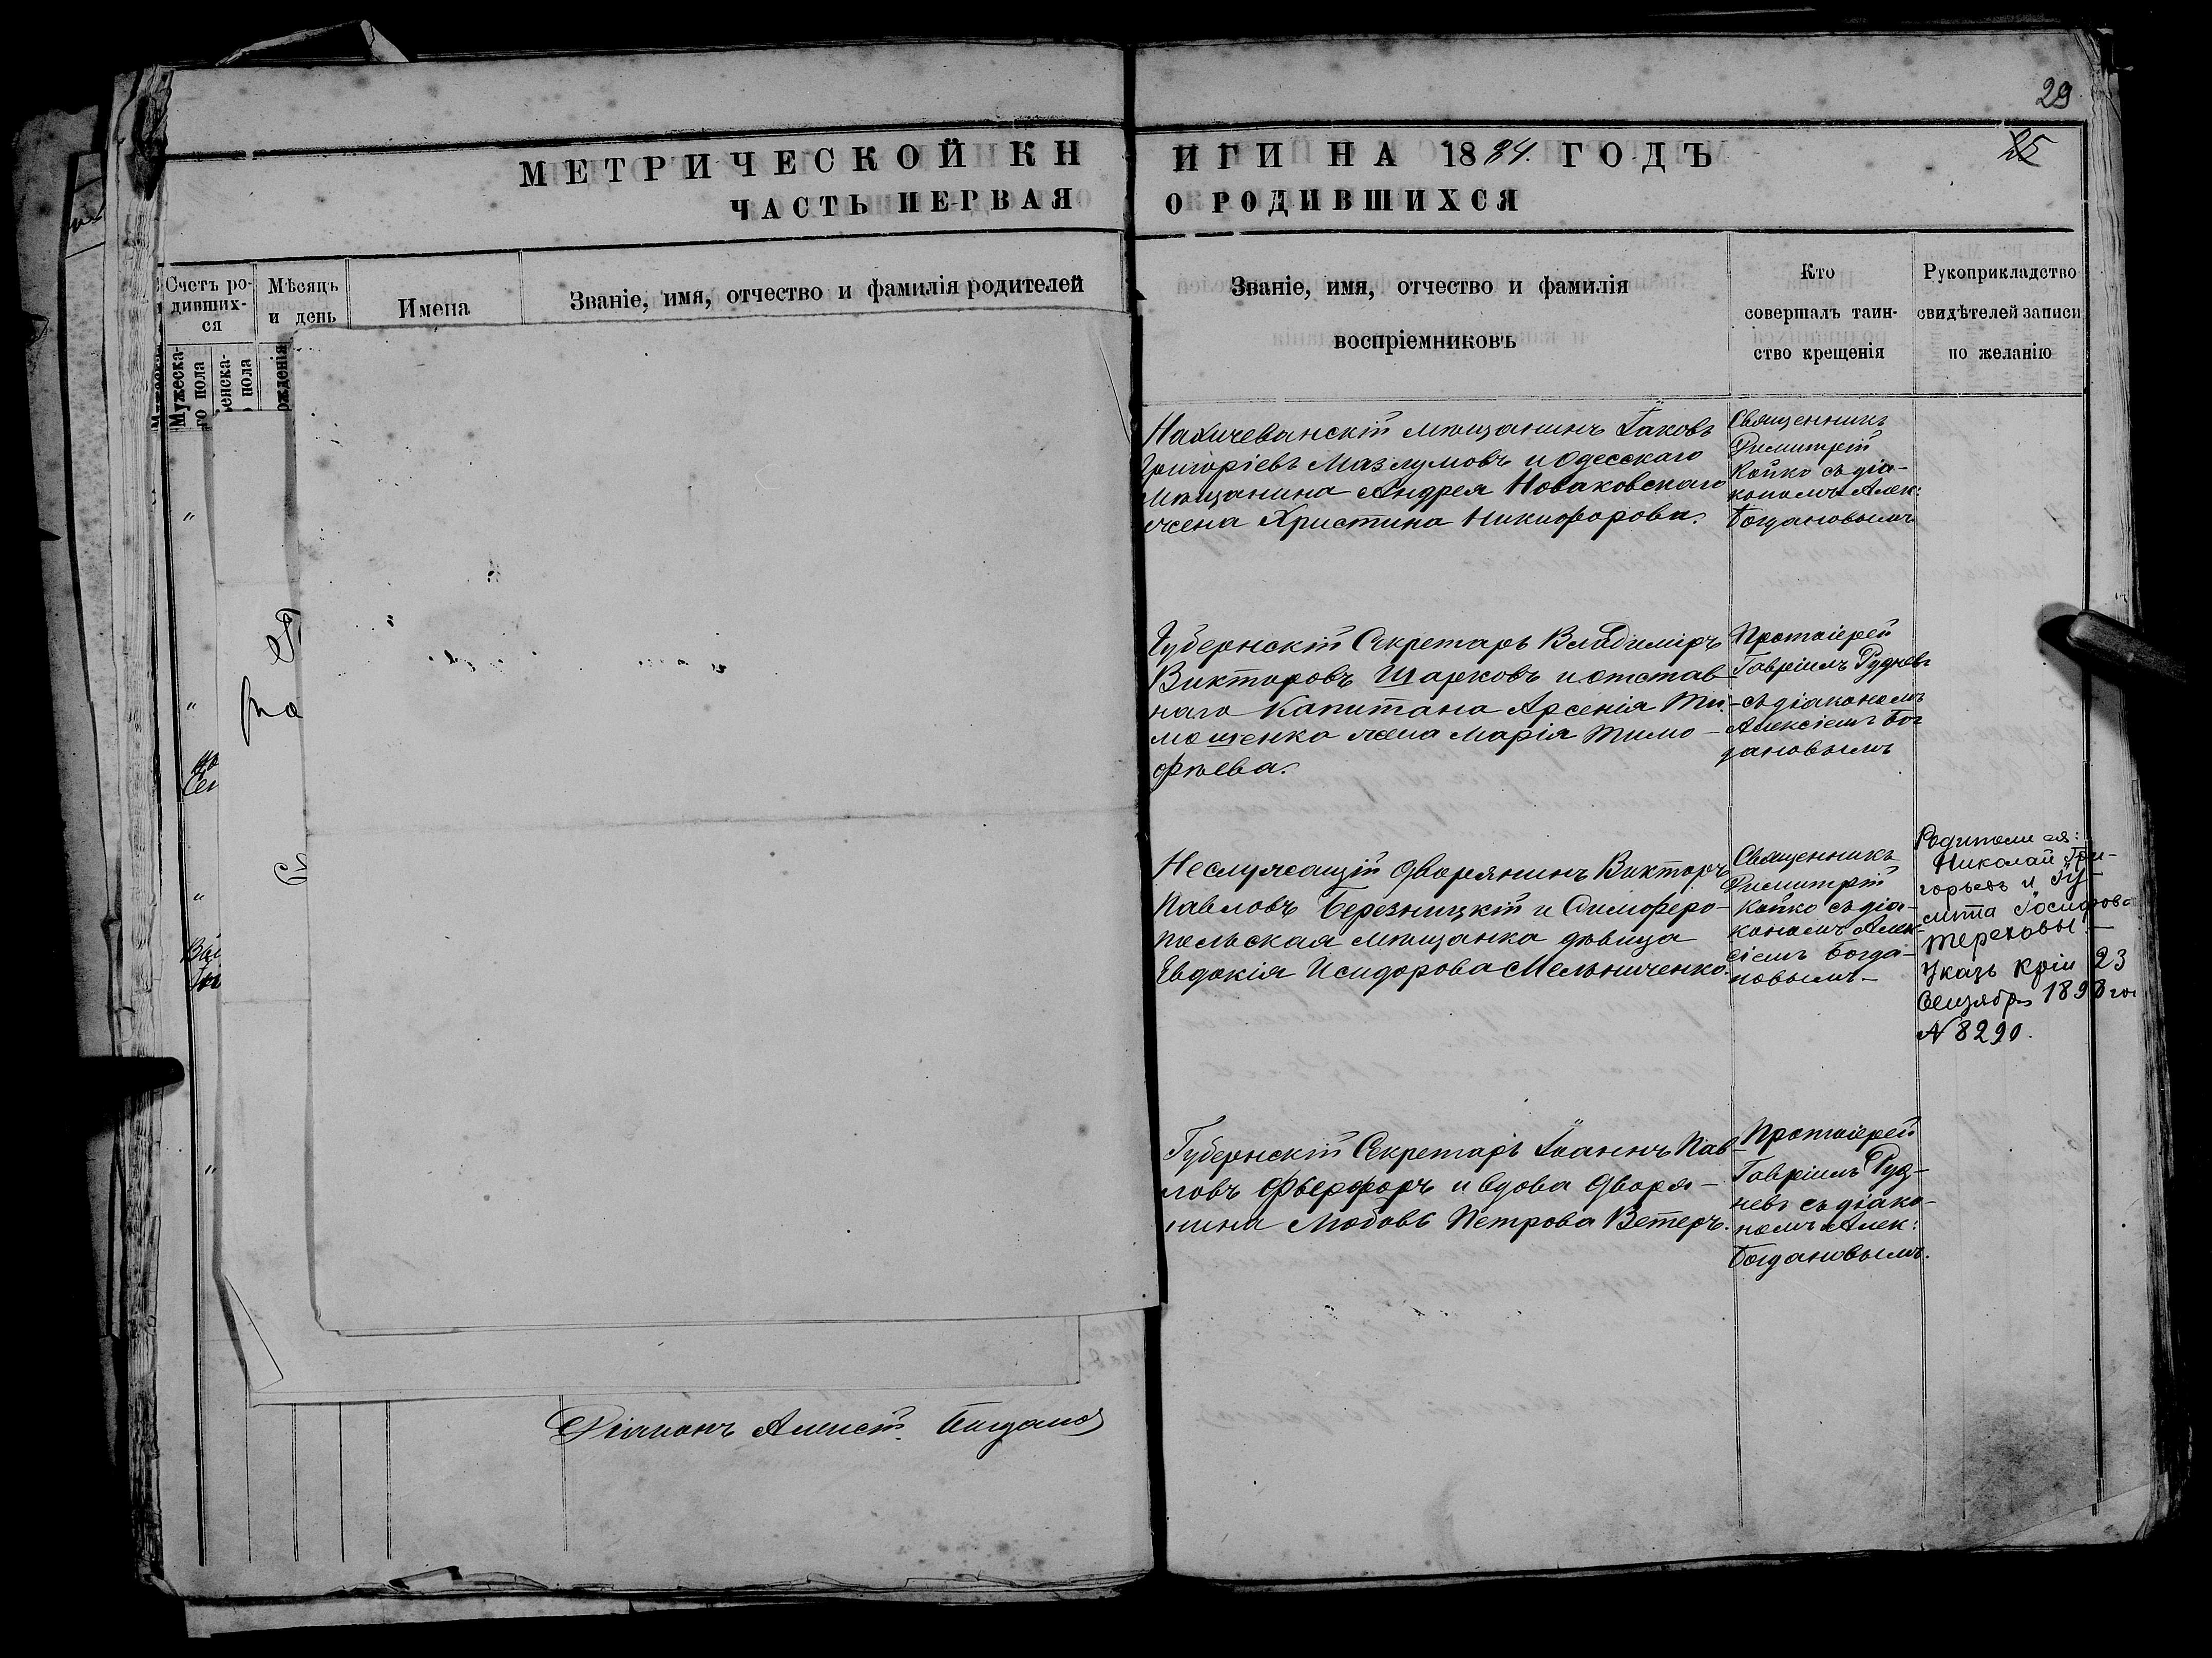 29
25
МЕТРИЧЕСКОЙ КН
ИГИ НА 1884. ГОДЪ
ЧАСТЬ ПЕРВАЯ
О РОДИВШИХСЯ
Счетъ ро-
дивших-
ся
Мѣсяцъ
и день
Имена
Званіе, имя, отчество и фамилія родителей
Мужеска-
го пола
Званіе, имя, отчество и фамилія
воспріемниковъ
Кто
совершалъ таин-
ство крещенія
Рукоприкладство
свидѣтелей записи
по желанію
Діаконъ Алексій Богданов
Нахичеванскій мѣщанинъ Іаковъ
Григоріевъ Мазлумовъ и Одесскаго
мѣщанина Андрея Новаковскаго
жена Христина Никифорова.
Священникъ
Димитрій
Койко съ діа-
кономъ Алек:
Богдановымъ
Губернскій Секретарь Владиміръ
Викторовъ Шарковъ и отстав-
наго Капитана Арсенія Ти-
мошенко жена Марія Тимо-
фѣева.
Протоіерей
Гавріилъ Рудневъ
съ діакономъ
Алексіемъ Бог
дановымъ
Неслужащій дворянинъ Викторъ
Павловъ Березницкій и Симферо-
польская мѣщанка дѣвица
Евдокія Исидорова Мельниченко.
Священникъ
Димитрій
Койко съ діа-
кономъ Алек-
сіемъ Богда-
новымъ-
Родители ея:
Николай Гри-
горьевъ и Іу-
литта Іосифова
Тереховы.-
Указъ 23
1898
N 8290.
Губернскій Секретарь Іоаннъ Пав-
ловъ Фьерфоръ и вдова дворя-
нина Любовь Петрова Ветеръ.
Протоіерей
Гавріилъ Руд-
невъ съ діако-
номъ Алек:
Богдановымъ.